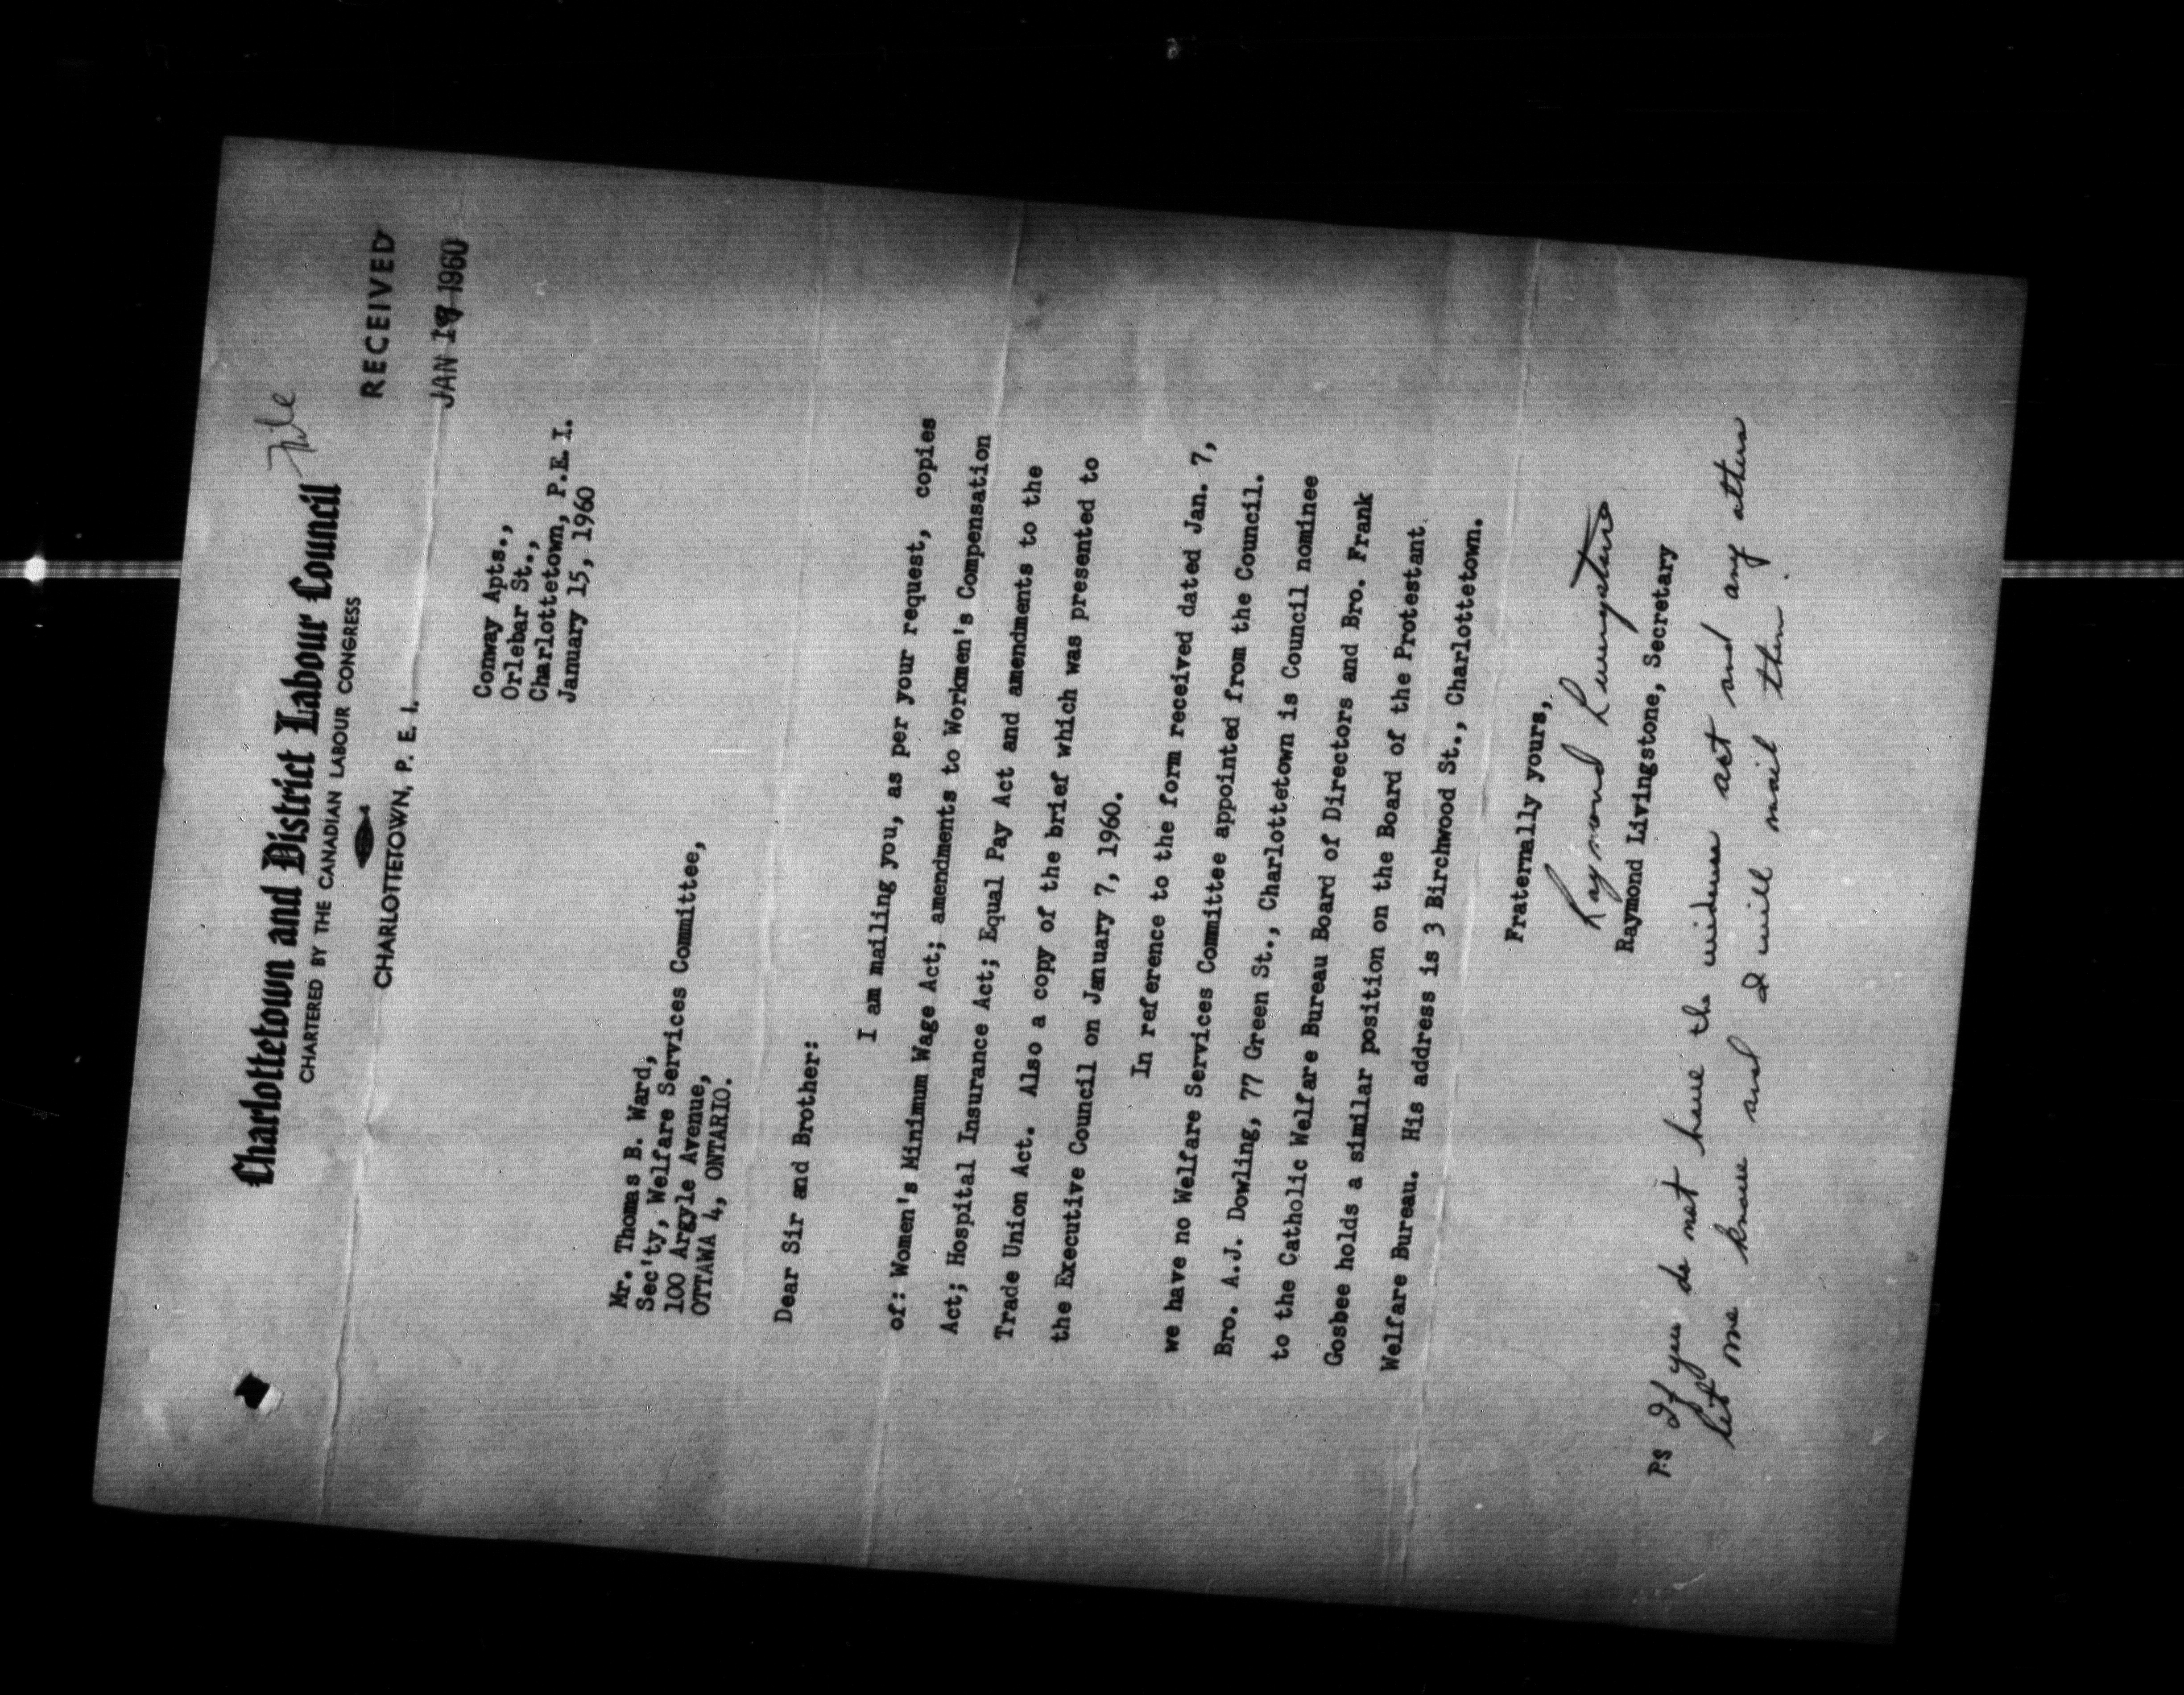 Charlottetown and District Labour Council
File
CHARTERED BY THE CANADIAN LABOUR CONGRESS
CHARLOTTETOWN, P. E. I.
RECEIVED
JAN 1960
Conway Apts.,
Orlebar St.,
Charlottetown, P.E.I.
January 15, 1960
Mr. Thomas B. Ward,
Sec'ty, Welfare Services Committee,
100 Argyle Avenue,
OTTAWA 4, ONTARIO.
Dear Sir and Brother:
I am mailing you, as per your request, copies
of: Women's Minimum Wage Act; amendments to Workmen's Compensation
Act; Hospital Insurance Act; Equal Pay Act and amendments to the
Trade Union Act. Also a copy of the brief which was presented to
the Executive Council on January 7, 1960.
In reference to the form received dated Jan. 7,
we have no Welfare Services Committee appointed from the Council.
Bro. A.J. Dowling, 77 Green St., Charlottetown is Council nominee
to the Catholic Welfare Bureau Board of Directors and Bro. Frank
Gosbee holds a similar position on the Board of the Protestant
Welfare Bureau. His address is 3 Birchwood St., Charlottetown.
Fraternally yours,
Raymond Livingstone
Raymond Livingstone, Secretary
P.S If you do not have the act and any others
let me know and I will mail them.